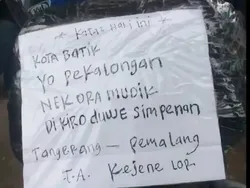 Kata² Hari ini
KOTA BATIK
Yo PeKALongan
NEK ORA MUDIK
DI KIRO DUWE Simpenan
TANgerang — Pemalang
T.A. Kejene LOR.